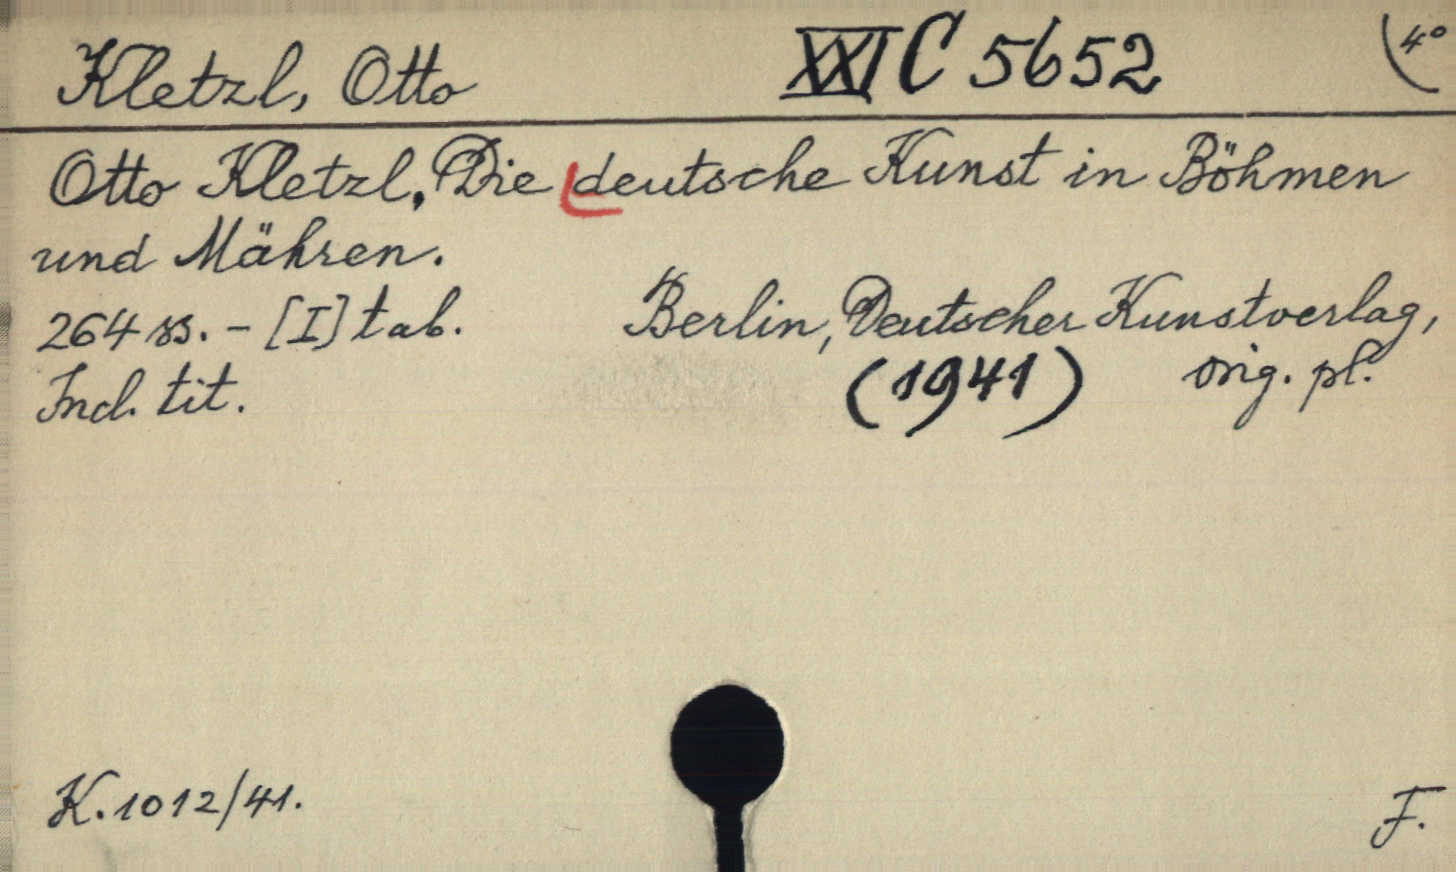 Kletzl, Otto XXI C 5652 4°
Otto Kletzl, Die deutsche Kunst in Böhmen
und Mähren.
264 ss. - [I] tab. Berlin, Deutscher Kunstverlag,
Incl. tit. (1941) orig. pl.
K. 1012/41. F.